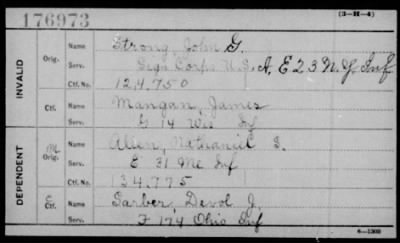 176973
(3-H-4)
INVALID
Orig.
Name Strong, John G.
Serv. Sign Corps U.S.A, E 23 N.J. Inf
Ctf. No. 124,750
Ctf.
Name Mangan, James
Serv. G 14 Wis Inf
DEPENDENT
M Orig.
Name Allen, Nathaniel S.
Serv. E 31 Me Inf
Ctf. No. 134,775
C Ctf.
Name Sarber, Devol J.
Serv. F 174 Ohio Inf
6-1308